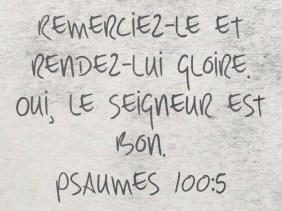 REMERCIEZ-LE ET
RENDEZ-LUI GLOIRE.
OUI, LE SEIGNEUR EST
BON.
PSAUMES 100:5